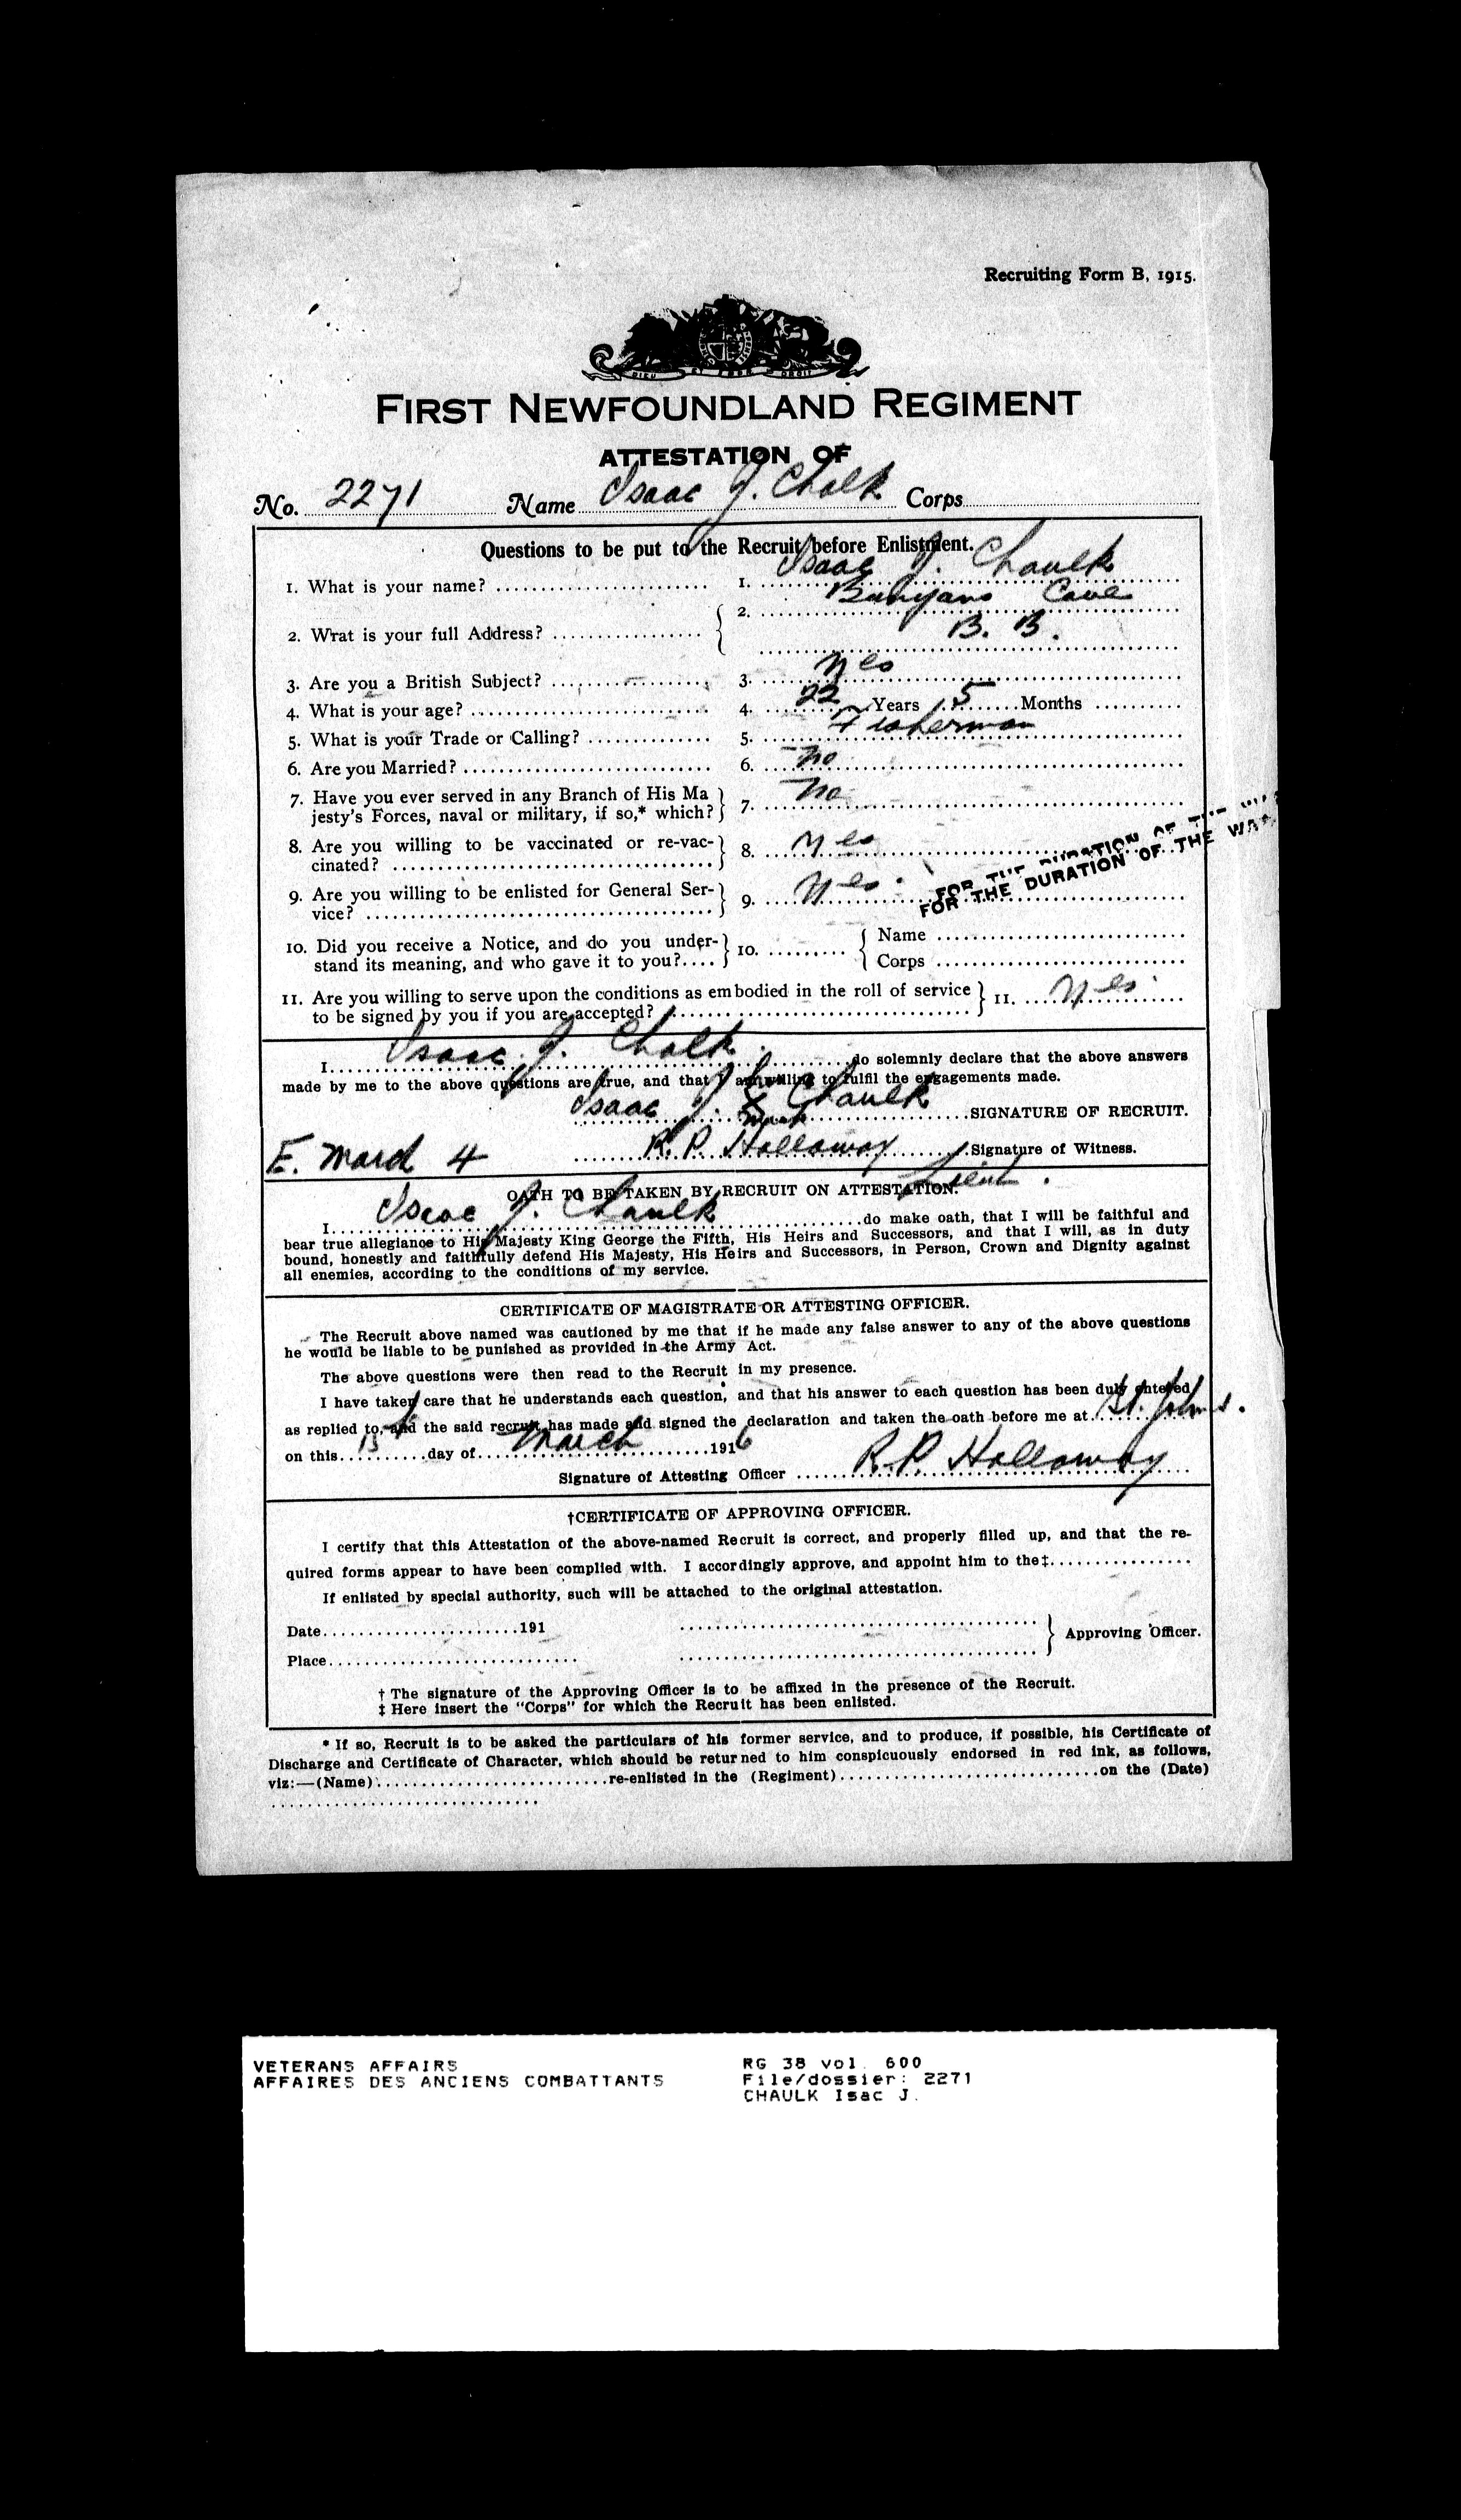 Recruiting Form B, 1915.
DIEU ET MON DROIT
FIRST NEWFOUNDLAND REGIMENT
ATTESTATION OF
No. 2271 Name Isaac J. Chalk Corps
Questions to be put to the Recruit before Enlistment.
1. What is your name? 1. Isaac J. Chaulk
2. Wrat is your full Address? 2. Bunyans Cove
B. B.
3. Are you a British Subject? 3. Yes
4. What is your age? 4. 22 Years 5 Months
5. What is your Trade or Calling? 5. Fisherman
6. Are you Married? 6. No
7. Have you ever served in any Branch of His Ma
jesty's Forces, naval or military, if so,* which? 7. No
8. Are you willing to be vaccinated or re-vac-
cinated? 8. Yes
9. Are you willing to be enlisted for General Ser-
vice? 9. Yes.
FOR THE DURATION OF THE
FOR THE DURATION OF THE WAR
10. Did you receive a Notice, and do you under-
stand its meaning, and who gave it to you? 10. Name
Corps
11. Are you willing to serve upon the conditions as embodied in the roll of service
to be signed by you if you are accepted? 11. Yes
I Isaac J. Chalk do solemnly declare that the above answers
made by me to the above questions are true, and that I am willing to fulfil the engagements made.
Isaac J. X Chaulk SIGNATURE OF RECRUIT.
mark
E. March 4 R. P. Holloway Signature of Witness.
Lieut.
OATH TO BE TAKEN BY RECRUIT ON ATTESTATION.
I Isaac J. Chaulk do make oath, that I will be faithful and
bear true allegiance to His Majesty King George the Fifth, His Heirs and Successors, and that I will, as in duty
bound, honestly and faithfully defend His Majesty, His Heirs and Successors, in Person, Crown and Dignity against
all enemies, according to the conditions of my service.
CERTIFICATE OF MAGISTRATE OR ATTESTING OFFICER.
The Recruit above named was cautioned by me that if he made any false answer to any of the above questions
he would be liable to be punished as provided in the Army Act.
The above questions were then read to the Recruit in my presence.
I have taken care that he understands each question, and that his answer to each question has been duly entered
as replied to, and the said recruit has made and signed the declaration and taken the oath before me at St. John's.
on this 13 day of March 1916
Signature of Attesting Officer R. P. Holloway
†CERTIFICATE OF APPROVING OFFICER.
I certify that this Attestation of the above-named Recruit is correct, and properly filled up, and that the re-
quired forms appear to have been complied with. I accordingly approve, and appoint him to the‡
If enlisted by special authority, such will be attached to the original attestation.
Date 191
Approving Officer.
Place
† The signature of the Approving Officer is to be affixed in the presence of the Recruit.
‡ Here insert the "Corps" for which the Recruit has been enlisted.
* If so, Recruit is to be asked the particulars of his former service, and to produce, if possible, his Certificate of
Discharge and Certificate of Character, which should be returned to him conspicuously endorsed in red ink, as follows,
viz:—(Name) re-enlisted in the (Regiment) on the (Date)
VETERANS AFFAIRS
AFFAIRES DES ANCIENS COMBATTANTS
RG 38 vol. 600
File/dossier: 2271
CHAULK Isac J.